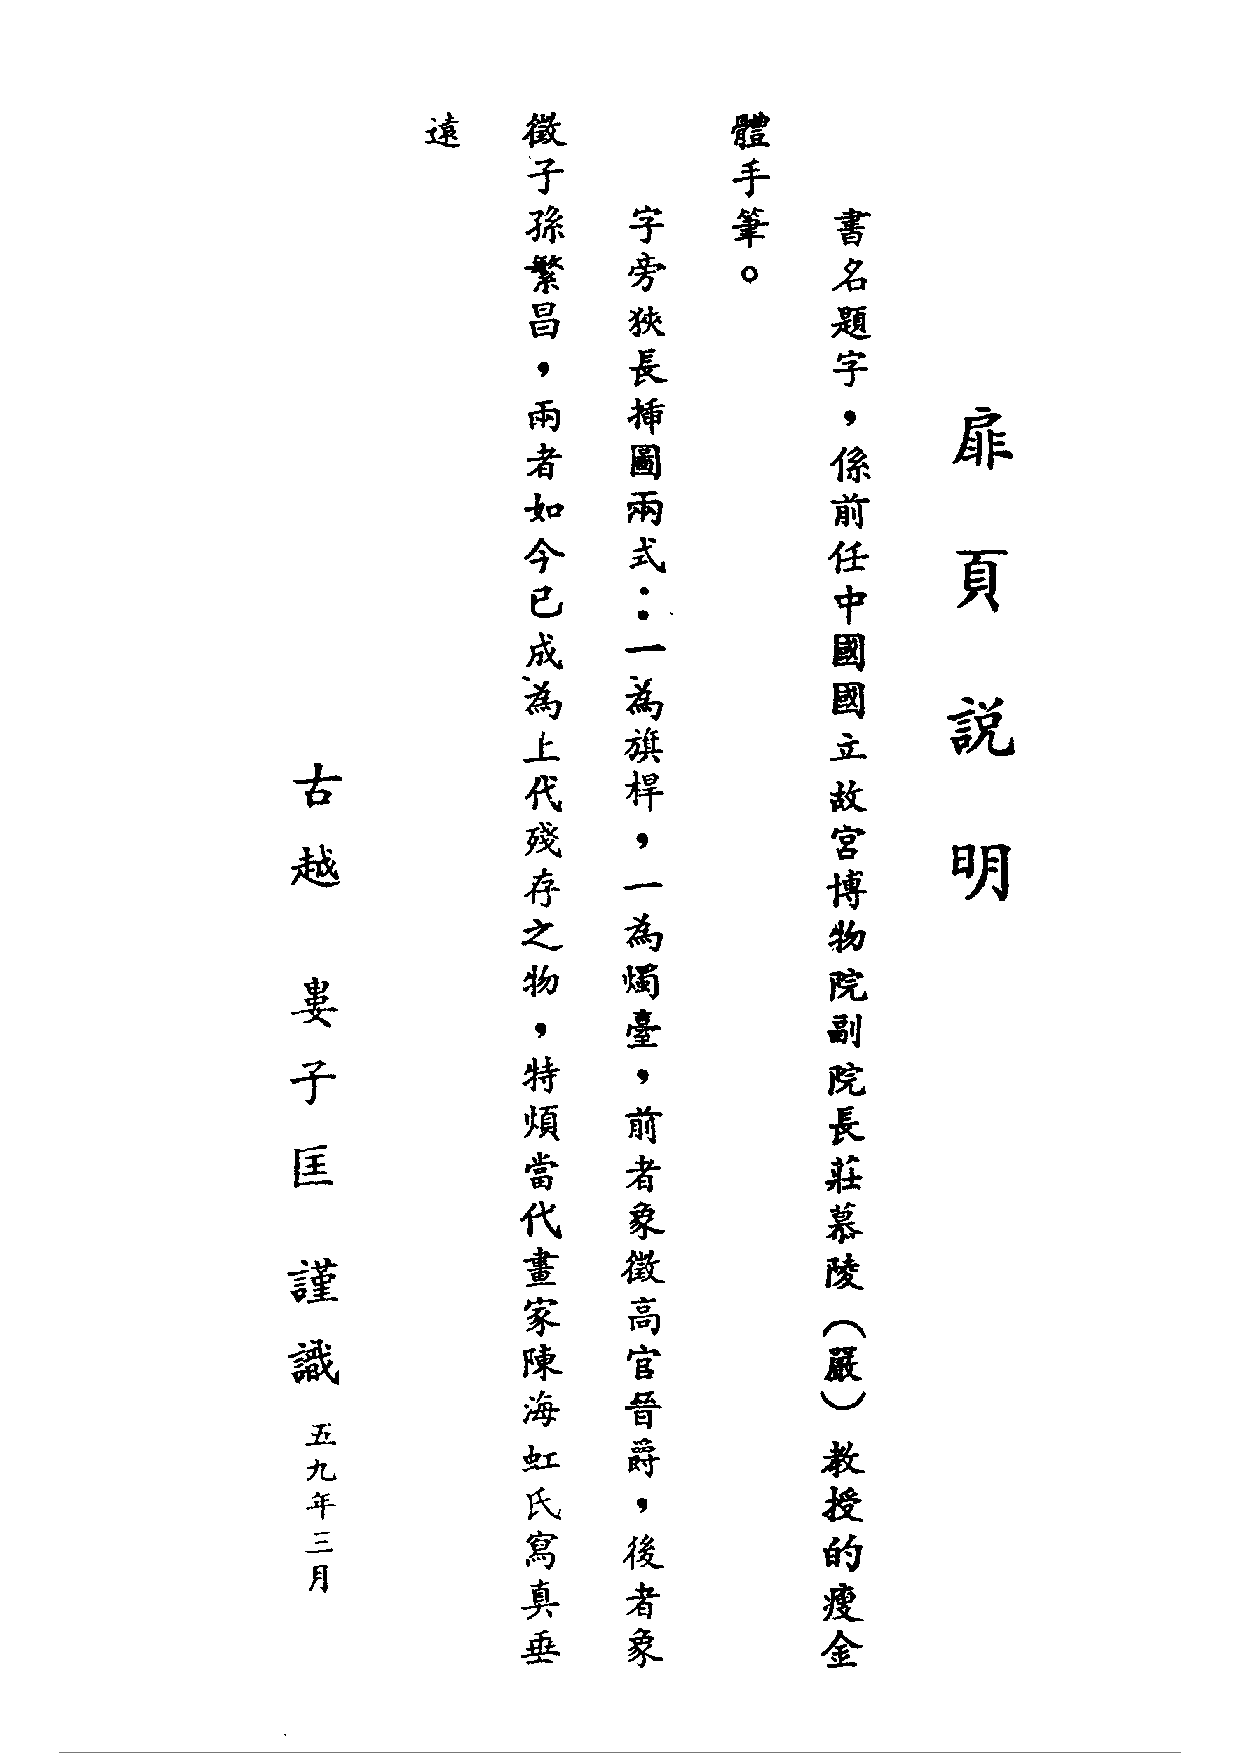 扉頁說明
書名題字，係前任中國國立故宮博物院副院長莊慕陵（嚴）教授的瘦金
體手筆。
字旁狹長揷圖兩式：一為旗桿，一為燭臺，前者象徵高官晉爵，後者象
徵子孫繁昌，兩者如今已成為上代殘存之物，特煩當代畫家陳海虹氏寫真垂
遠
古越　婁子匡　謹識　五九年三月